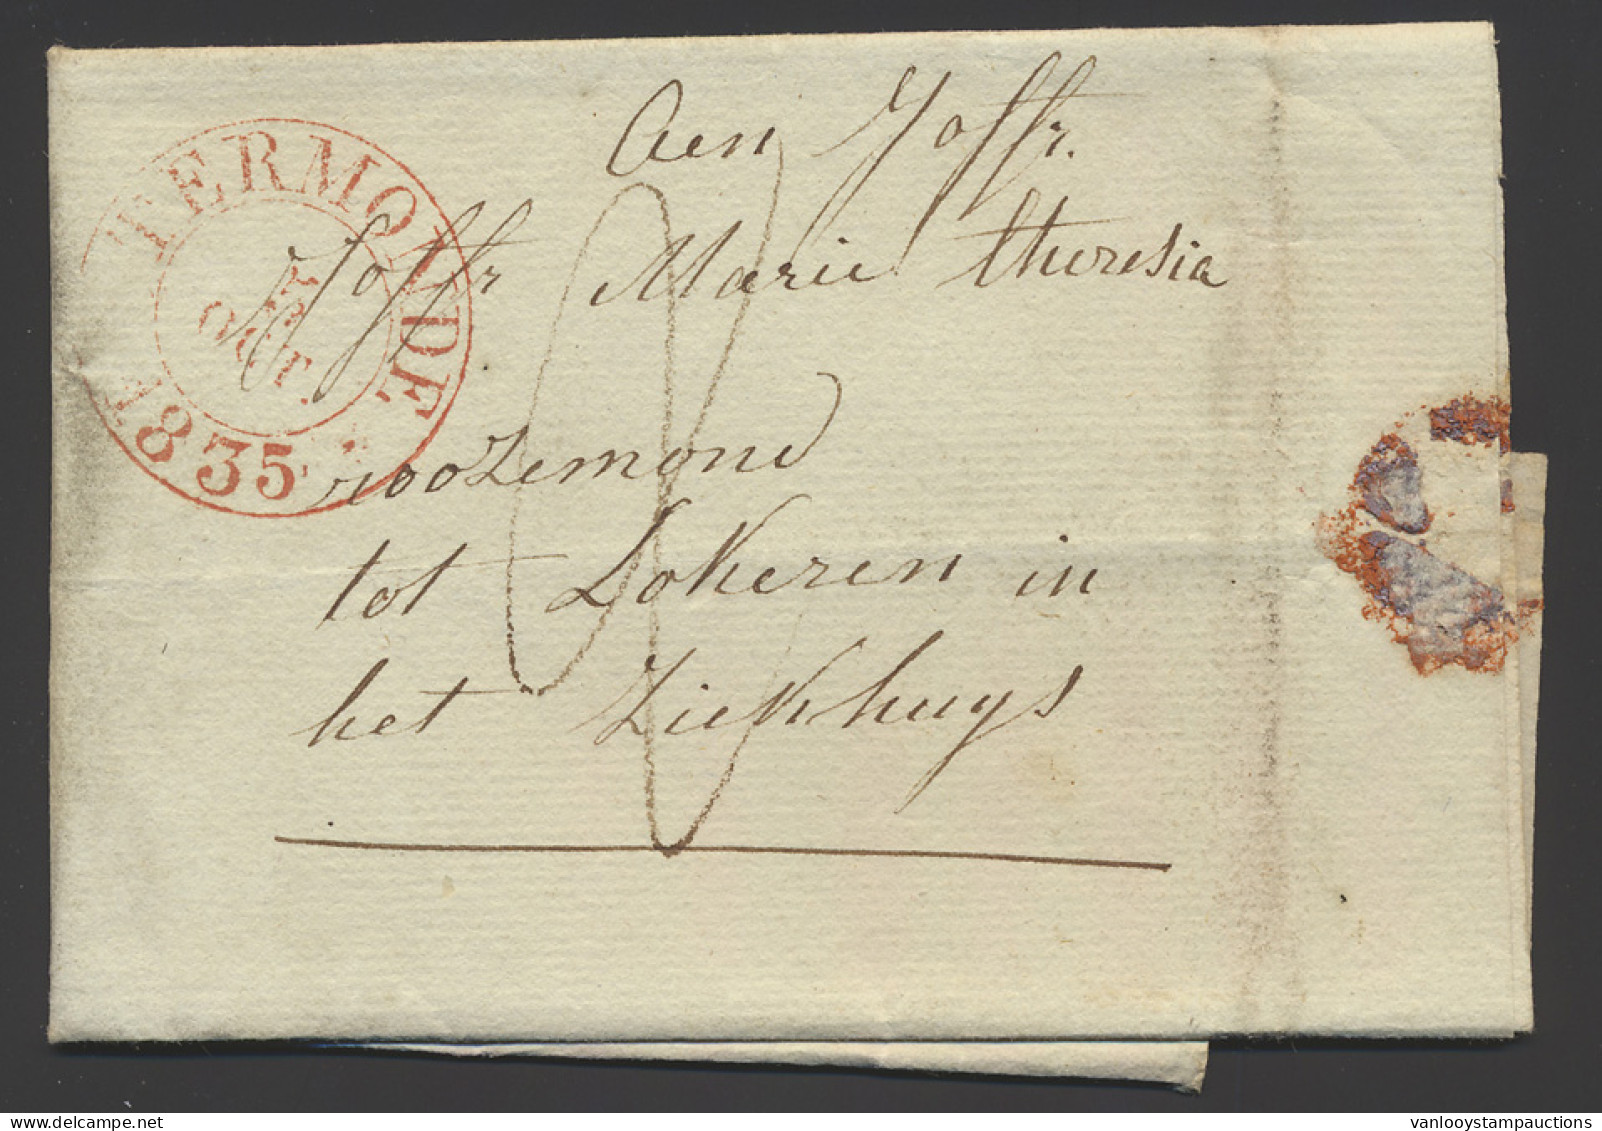 Aen Joffr.
Joffr Marie theresia
roozemond
tot Lokeren in
het Ziekhuys
TERMONDE
OCT.
1835
vanlooystampauctions